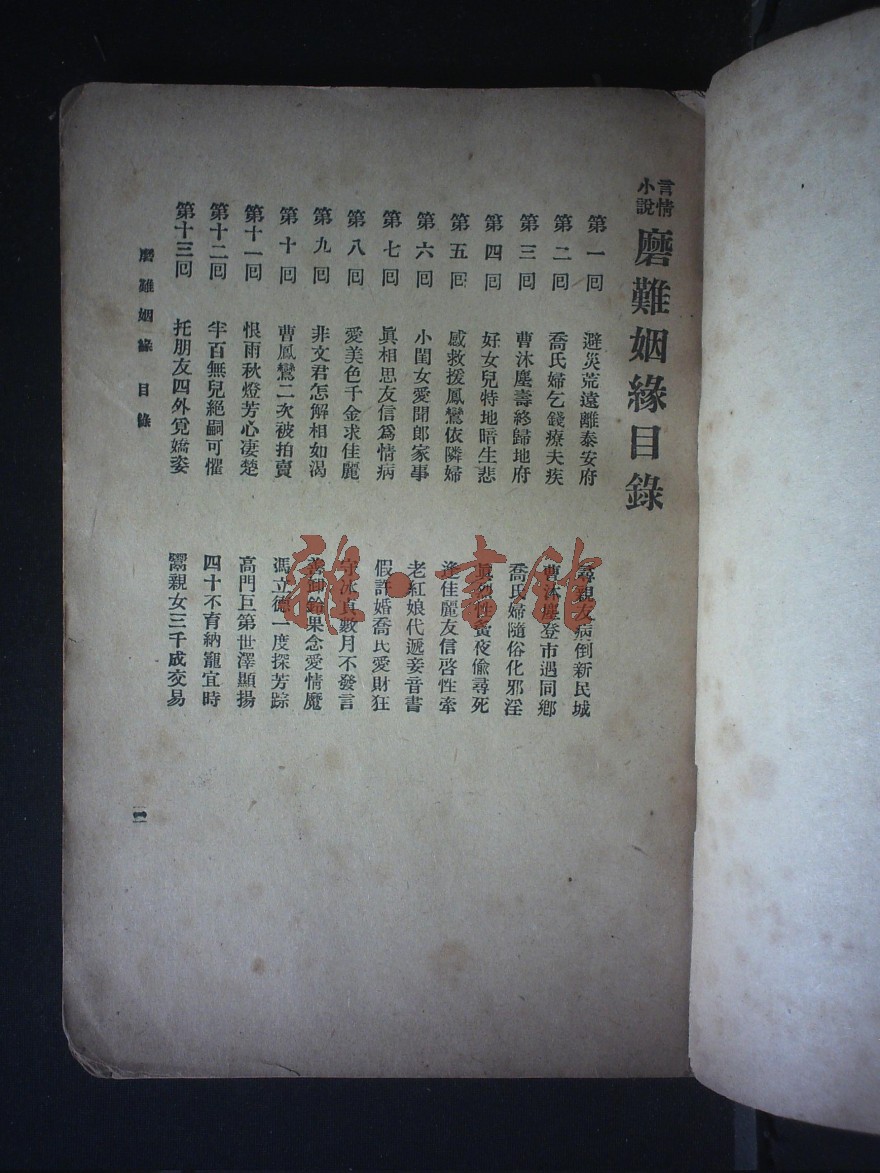 言情小說 磨難姻緣目錄
第一回 避災荒遠離泰安府 尋親友病倒新民城
第二回 喬氏婦乞錢療夫疾 曹沐塵登市遇同鄉
第三回 曹沐塵壽終歸地府 喬氏婦隨俗化邪淫
第四回 好女兒特地暗生悲 眞烈性黃夜偷尋死
第五回 感救援鳳鸞依隣婦 逢佳麗友信啓性牽
第六回 小閨女愛聞郎家事 老紅娘代遞妾音書
第七回 眞相思友信爲情病 假許婚喬氏愛財狂
第八回 愛美色千金求佳麗 守冰貞數月不發言
第九回 非文君怎解相如渴 卸鈴果念愛情魔
第十回 曹鳳鸞二次被拍賣 馮立德一度探芳踪
第十一回 恨雨秋燈芳心凄楚 高門巨第世澤顯揚
第十二回 半百無兒絕嗣可懼 四十不育納寵宜時
第十三回 托朋友四外覓嬌姿 鬻親女三千成交易
磨難姻緣 目錄
一
雜·書館